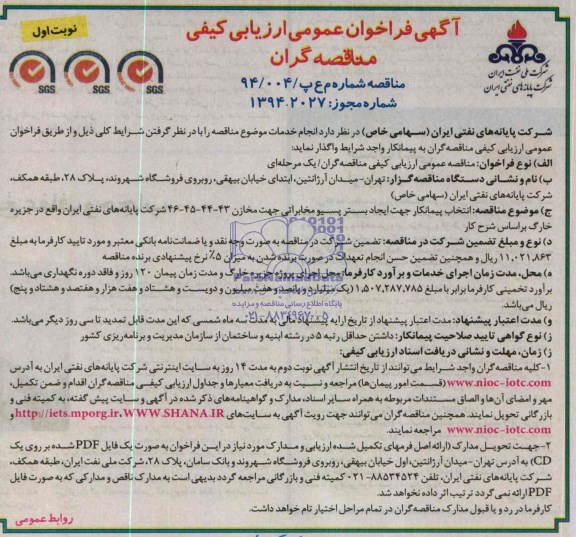 آگهی فراخوان عمومی ارزیابی کیفی
مناقصه گران
نوبت اول
مناقصه شماره م ع پ/۹۴/۰۰۴
شماره مجوز: ۱۳۹۴.۲۰۲۷
شرکت ملی نفت ایران
شرکت پایانه‌های نفتی ایران
SGS SGS SGS
شرکت پایانه‌های نفتی ایران (سهامی خاص) در نظر دارد انجام خدمات موضوع مناقصه را با در نظر گرفتن شرایط کلی ذیل و از طریق فراخوان
عمومی ارزیابی کیفی مناقصه‌گران به پیمانکار واجد شرایط واگذار نماید:
الف) نوع فراخوان: مناقصه عمومی ارزیابی کیفی مناقصه‌گران/ یک مرحله‌ای
ب) نام و نشانی دستگاه مناقصه‌گزار: تهران-میدان آرژانتین، ابتدای خیابان بیهقی، روبروی فروشگاه شهروند، پلاک ۲۸، طبقه همکف،
شرکت پایانه‌های نفتی ایران (سهامی خاص)
ج) موضوع مناقصه: انتخاب پیمانکار جهت ایجاد بستر پسیو مخابراتی جهت مخازن ۴۳-۴۴-۴۵-۴۶ شرکت پایانه‌های نفتی ایران واقع در جزیره
خارک براساس شرح کار
د) نوع و مبلغ تضمین شرکت در مناقصه: تضمین شرکت در مناقصه به صورت وجه نقد و یا ضمانت‌نامه بانکی معتبر و مورد تایید کارفرما به مبلغ
۱۱,۰۲۱,۸۶۳ ریال و همچنین تضمین حسن انجام تعهدات در صورت برنده شدن به میزان ۵٪ نرخ پیشنهادی برنده مناقصه
ه) محل، مدت زمان اجرای خدمات و برآورد کارفرما: محل اجرای پروژه جزیره خارگ و مدت زمان پیمان ۱۲۰ روز و فاقد دوره نگهداری می‌باشد.
برآورد تخمینی کارفرما برابر با مبلغ ۱,۵۰۷,۲۸۷,۷۸۵ (یک میلیارد و پانصد و هفت میلیون و دویست و هشتاد و هفت هزار و هفتصد و هشتاد و پنج)
ریال می‌باشد.
و) مدت اعتبار پیشنهاد: مدت اعتبار پیشنهاد از تاریخ ارایه پیشنهاد مالی به مدت سه ماه شمسی که این مدت قابل تمدید تا سی روز دیگر می‌باشد.
ز) نوع گواهی تایید صلاحیت پیمانکار: داشتن حداقل رتبه ۵ در رشته ابنیه و ساختمان از سازمان مدیریت و برنامه‌ریزی کشور
ژ) زمان، مهلت و نشانی دریافت اسناد ارزیابی کیفی:
۱-کلیه مناقصه‌گران واجد شرایط می‌توانند از تاریخ انتشار آگهی نوبت دوم به مدت ۱۴ روز به سایت اینترنتی شرکت پایانه‌های نفتی ایران به آدرس
www.nioc-iotc.com (قسمت امور پیمان‌ها) مراجعه و نسبت به دریافت معیارها و جداول ارزیابی کیفی مناقصه‌گران اقدام و ضمن تکمیل،
مهر و امضای آن‌ها و الصاق مستندات مربوطه به همراه سایر اسناد، مدارک و گواهینامه‌های ذکر شده در آگهی و سایت پیش گفته، به کمیته فنی و
بازرگانی تحویل نمایند. همچنین مناقصه گران می‌توانند جهت رویت آگهی به سایت‌های http://iets.mporg.ir.WWW.SHANA.IR و
www.nioc-iotc.com مراجعه نمایند.
۲-جهت تحویل مدارک (ارائه اصل فرمهای تکمیل شده ارزیابی و مدارک مورد نیاز در این فراخوان به صورت یک فایل PDF شده بر روی یک
CD) به آدرس تهران-میدان آرژانتین، اول خیابان بیهقی، روبروی فروشگاه شهروند و بانک سامان، پلاک ۲۸، شرکت ملی نفت ایران، طبقه همکف،
شرکت پایانه‌های نفتی ایران، تلفن ۸۸۵۳۴۵۲۴-۰۲۱ کمیته فنی و بازرگانی مراجعه گردد بدیهی است به مدارک ناقص و مدارکی که به صورت فایل
PDF ارائه نمی گردد ترتیب اثر داده نخواهد شد.
کارفرما در رد و یا قبول مدارک مناقصه‌گران در تمام مراحل اختیار تام خواهد داشت.
روابط عمومی
پایگاه اطلاع رسانی مناقصه و مزایده
۰۲۱-۸۸۳۴۹۶۷۰-۵